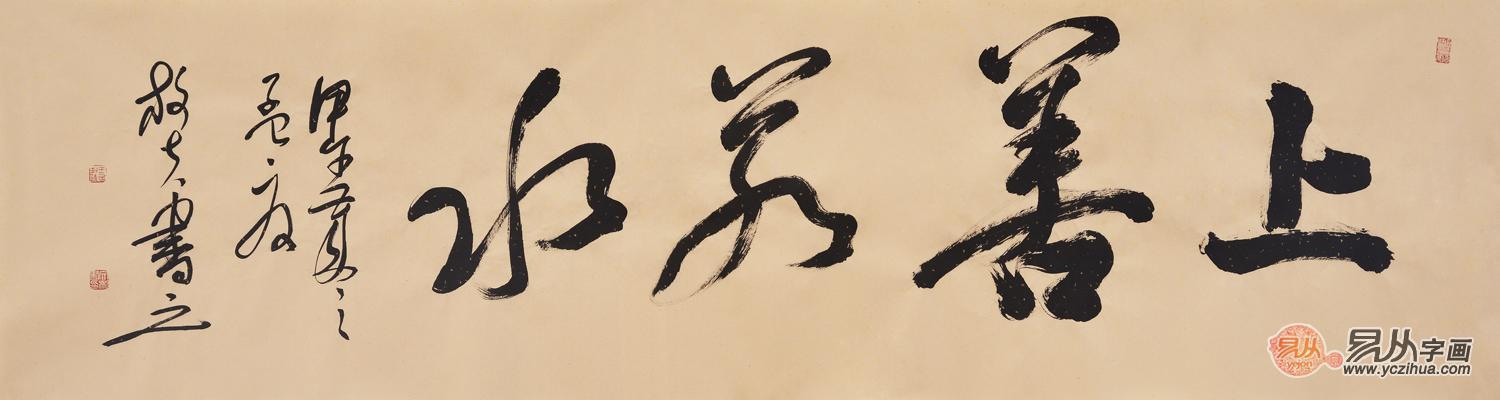 上善若水
甲午夏之
孟
书之
易从字画
www.yczihua.com